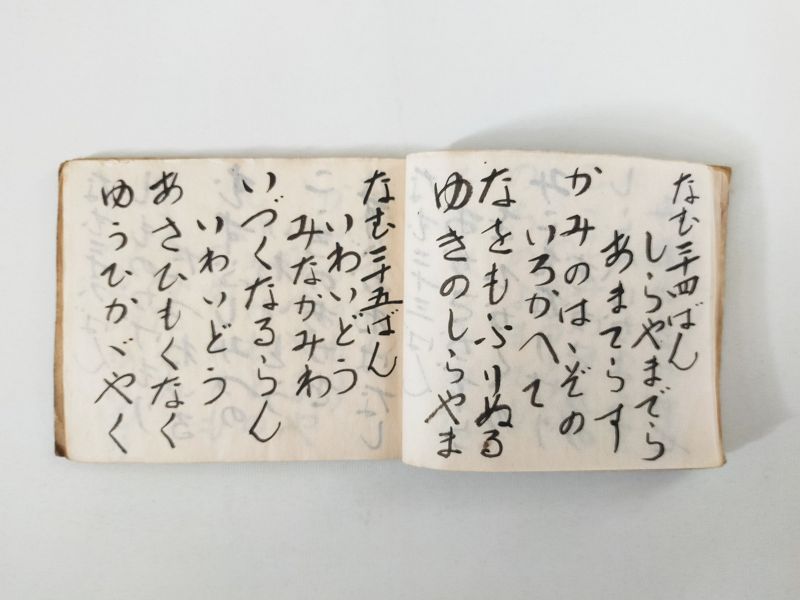 なむ三十四ばん
しらやまでら
あまてらす
かみのはゝぞの
いろかへて
なをもふりぬる
ゆきのしらやま
なむ三十五ばん
いわいどう
みなかみわ
いづくなるらん
いわいどう
あさひもくなく
ゆうひかゞやく